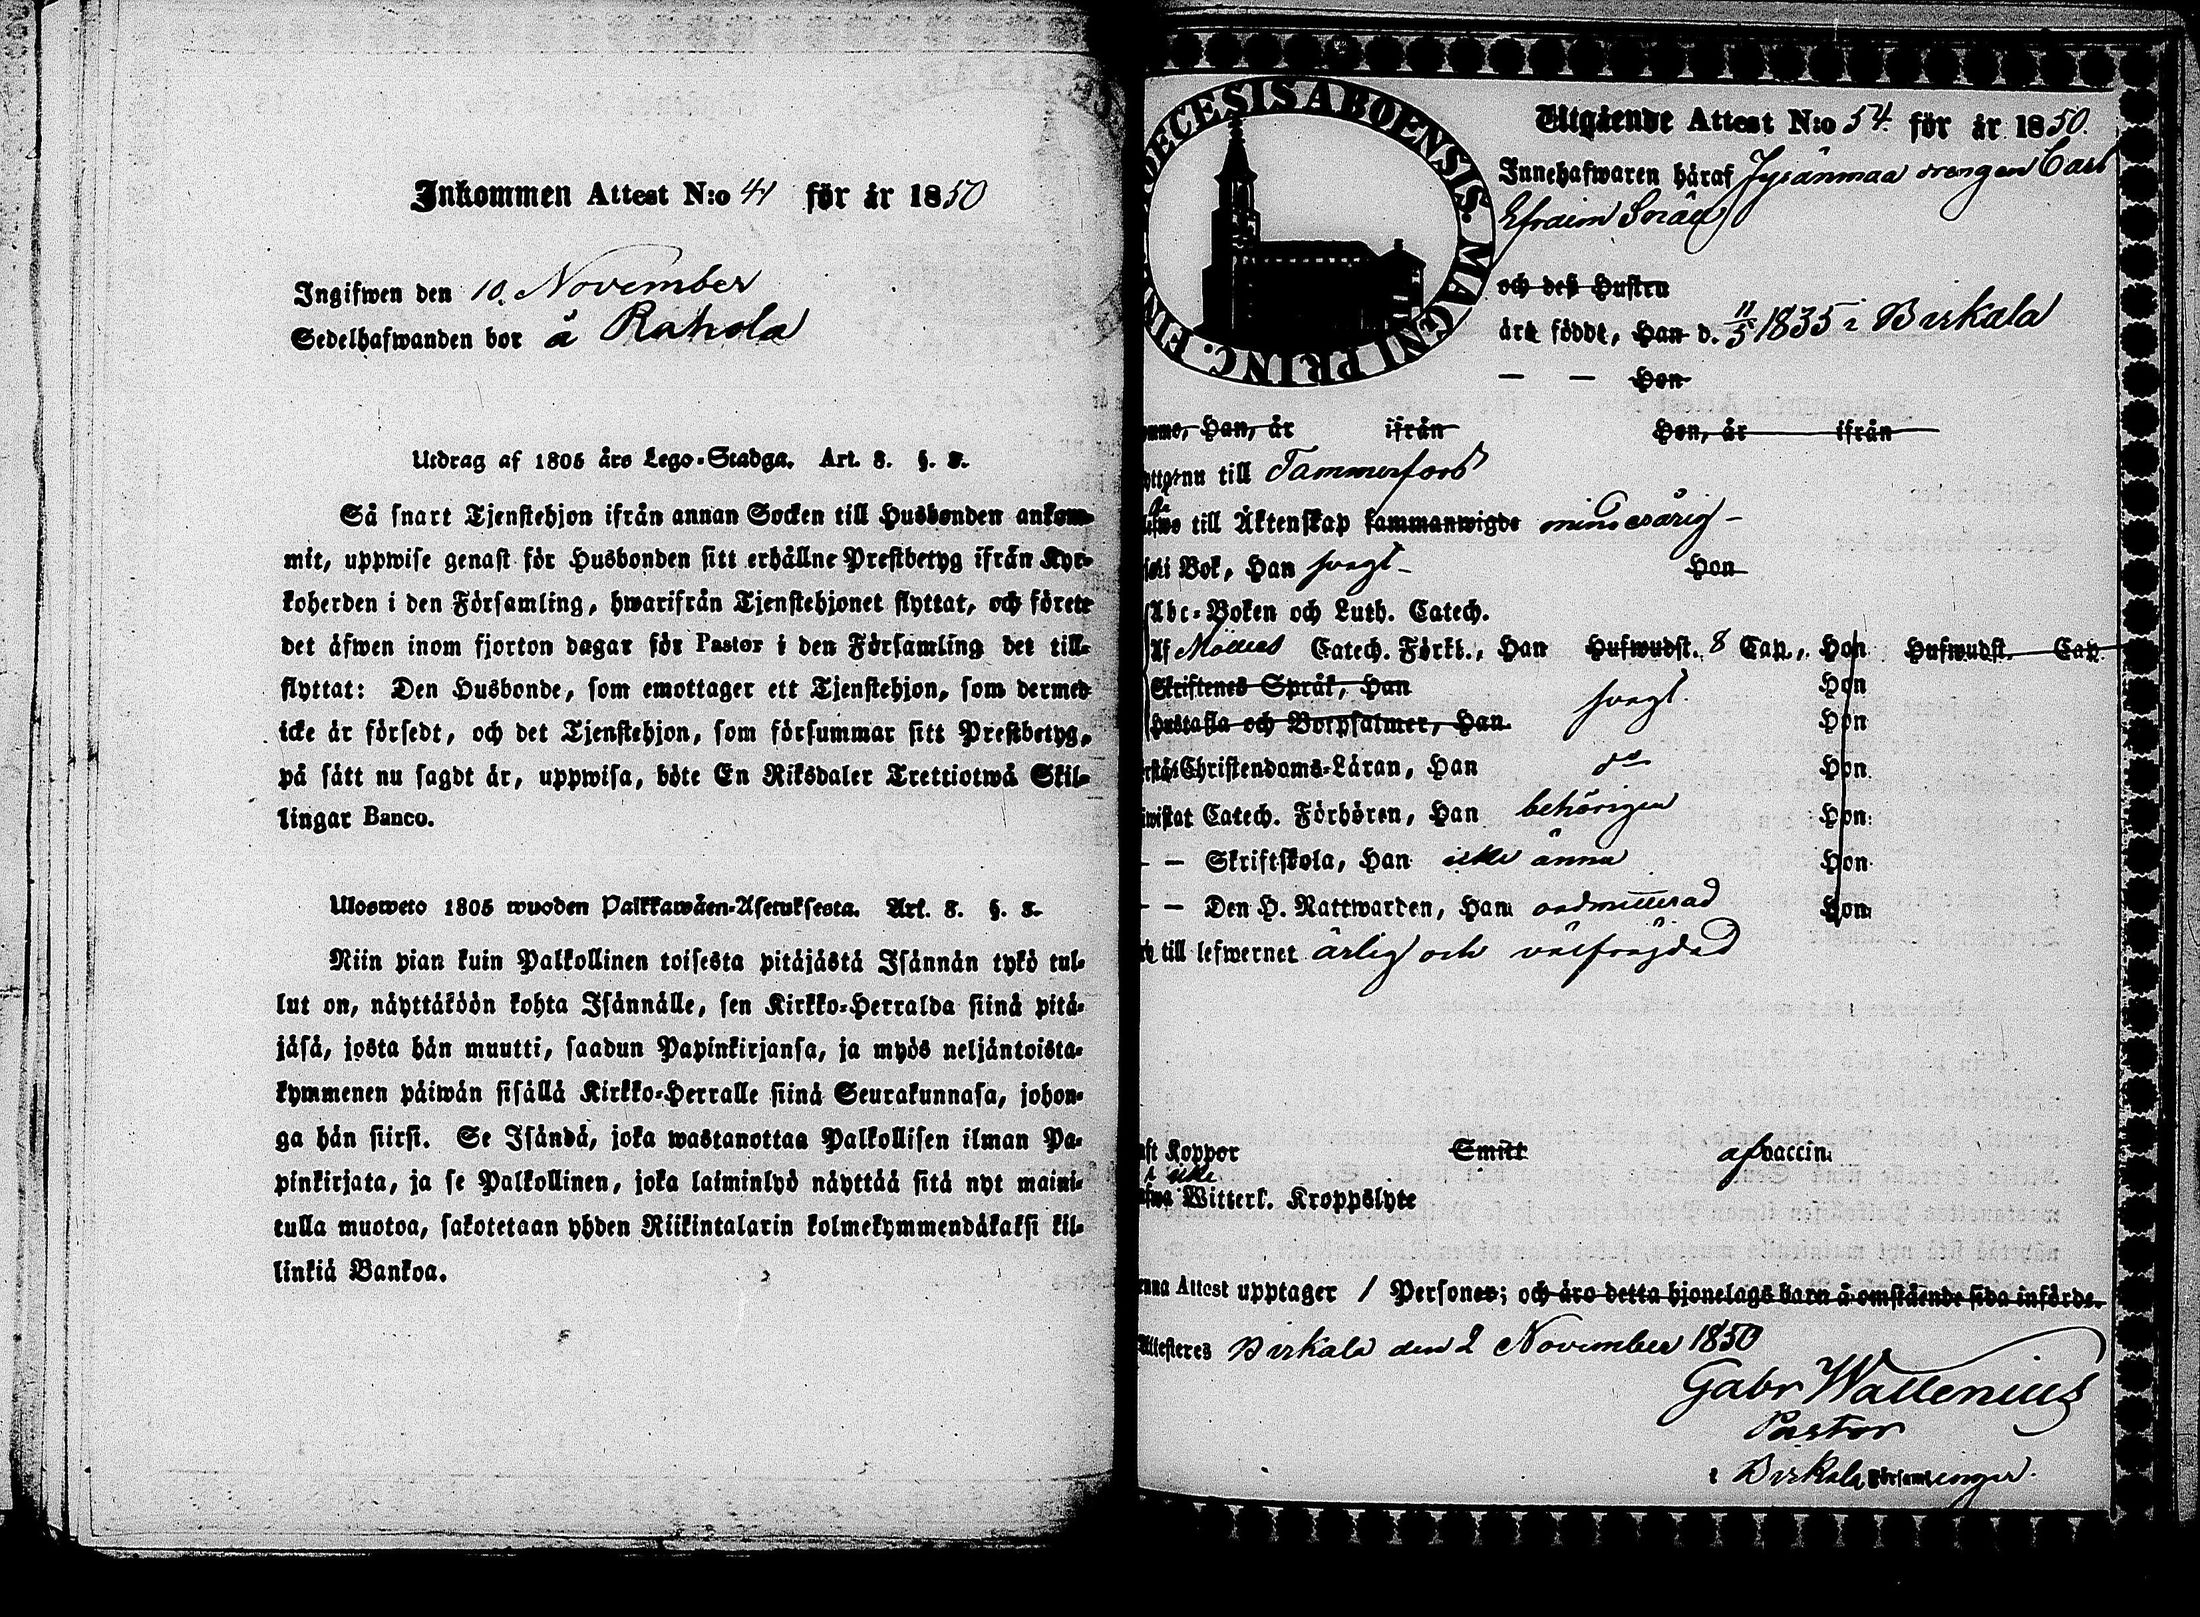 Inkommen Attest N:o 41 för år 1850
Ingifwen den 10. November
Sedelhafwanden bor å Rahola
Utdrag af 1805 års Lego-Stadga. Art. 8. §. 8.
Så snart Tjenstehjon ifrån annan Socken till Husbonden ankom-
mit, uppwise genast för Husbonden sitt erhållne Prestbetyg ifrån Kyr-
koherden i den Församling, hwarifrån Tjenstehjonet flyttat, och förete
det äfwen inom fjorton dagar för Pastor i den Församling det till-
flyttat: Den Husbonde, som emottager ett Tjenstehjon, som dermed
icke är försedt, och det Tjenstehjon, som försummar sitt Prestbetyg,
på sätt nu sagdt är, uppwisa, böte En Riksdaler Trettiotwå Skil-
lingar Banco.
Ulosweto 1805 wuoden Palkkawäen-Asetuksesta. Art. 8. §. 8.
Niin pian kuin Palkollinen toisesta pitäjästä Isännän tykö tul-
lut on, näyttäköön kohta Isännälle, sen Kirkko-Herralda siinä pitä-
jäsä, josta hän muutti, saadun Papinkirjansa, ja myös neljäntoista-
kymmenen päiwän sisällä Kirkko-Herralle siinä Seurakunnasa, johon-
ga hän siirsi. Se Isändä, joka wastanottaa Palkollisen ilman Pa-
pinkirjata, ja se Palkollinen, joka laiminlyö näyttää sitä nyt maini-
tulla muotoa, sakotetaan yhden Riikintalarin kolmekymmendäkaksi kil-
linkiä Bankoa.
DIOECESIS ABOENSIS. MAGNI PRINC. FIN
Utgående Attest N:o 54. för år 1850.
Innehafwaren häraf drengen Carl
Efraim
och dess Hustru
äre född, Han d. 11/5 1835 i Birkala
— — Hon
Han, är ifrån Hon, är ifrån
till Tammerfors
till Äktenskap sammanwigde minderårig –
Bok, Han svagt – Hon
Abc-Boken och Luth. Catech.
Af Möllers Catech. Förkl., Han Hufwudst. 8 Cap., Hon Hufwudst. Cap.
Skriftenes Språk, Han svagt. Hon
Hustafla och Botpsalmer, Han Hon
Christendoms-Läran, Han do Hon
Catech. Förhören, Han behörigen Hon
— — Skriftskola, Han icke ännu Hon
— — Den H. Nattwarden, Han oadmitterad Hon
till lefwernet ärlig och välfrägdad
Koppor Smitt af vaccin.
icke
Witterl. Kroppslyte
Attest upptager 1 Personer; och äro detta hjonelags barn å omstående sida införde.
Attesteres Birkala den 2 November 1850
Gabr Wallenius
Pastor
i Birkala Församlingar.